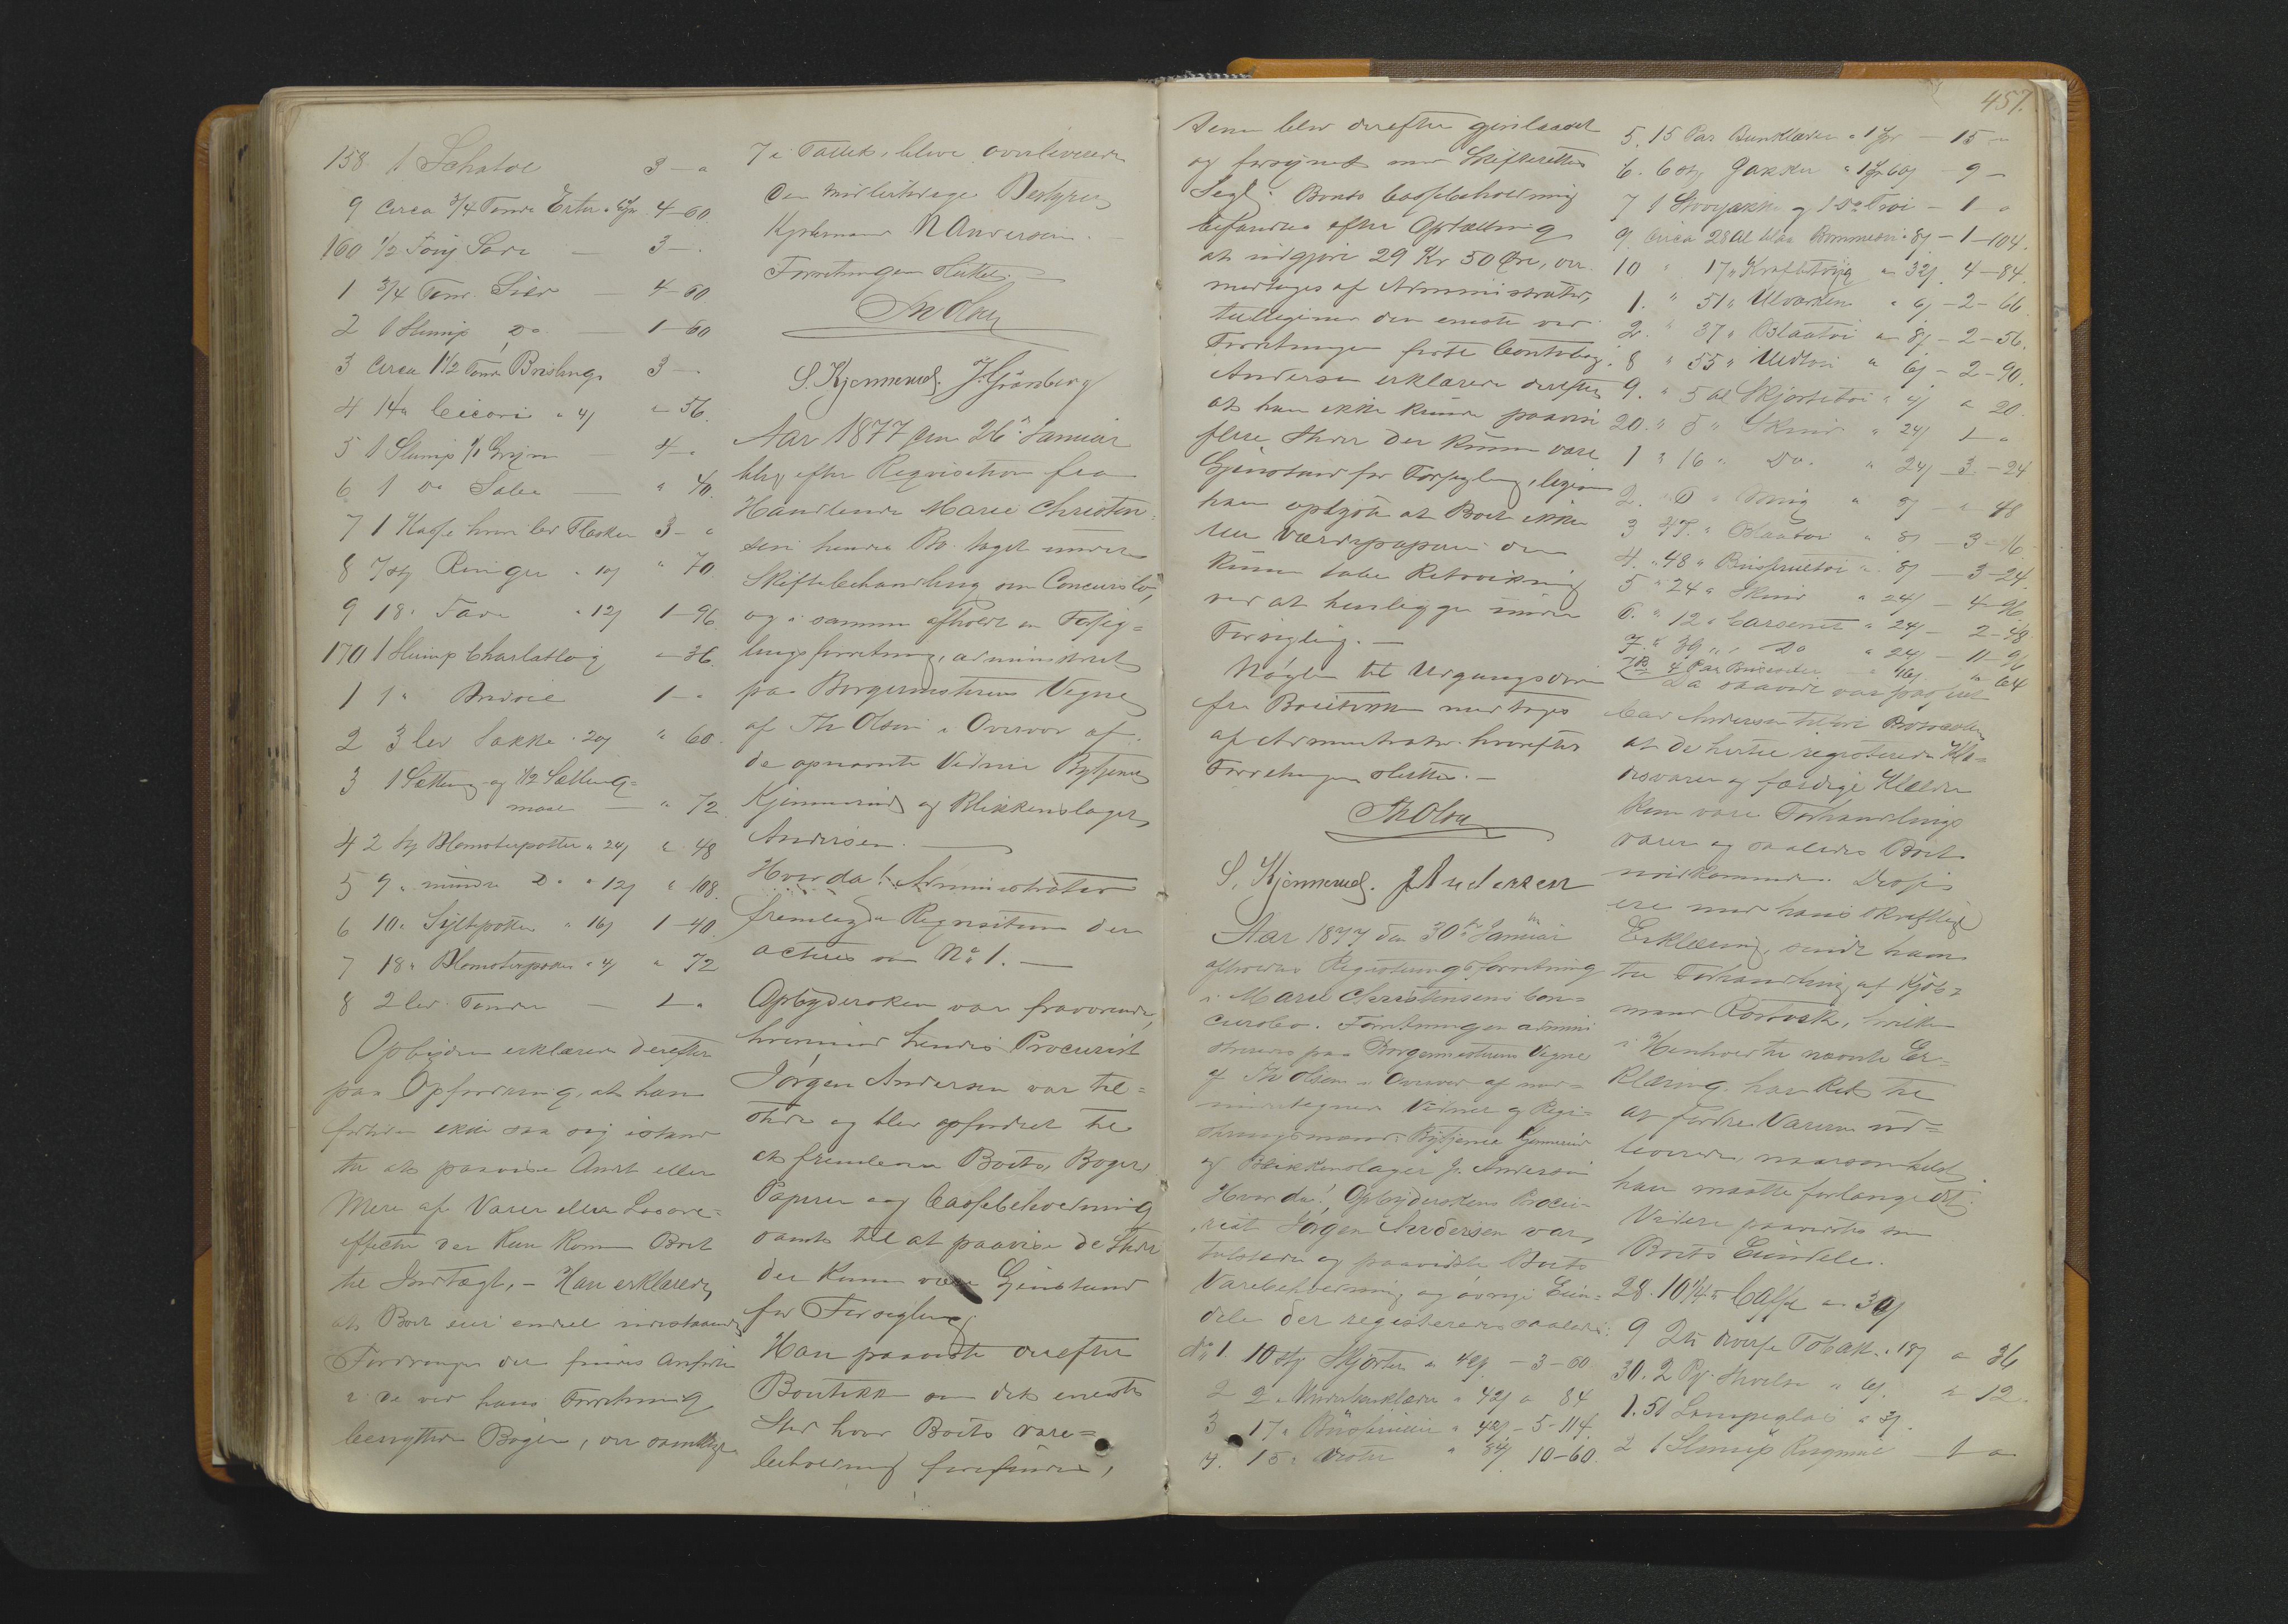 158 1 Schatol 3 — "
9 Circa 3/4 Tønde Erter 4 – 60.
160 1/2 Save — 3 — "
1 3/4 Tønde Sild — 4 – 60
2 1 Slump Do — 1 – 60
3 Circa 1 1/2 Tønde Brisling 3 — "
4 14 Cicori " 4 " 56.
5 1 Slump Gryn — 4 — "
6 1 do Sæbe — " 40.
7 1 Kasse hvori led Flasker 3 — "
8 7 Stk Ringer " 10 " 70.
9 18 " " 12 1 – 96
170 1 Slump " 36.
1 1 " 1 — "
2 3 led Sække " 20 " 60.
3 1 Sætting og 1/2 Sætting=
maal — " 72
4 2 Stk Blomsterpotter " 24 " 48
5 9 " mindre Do " 12 " 108.
6 10 " Syltepotter " 16 1 – 40.
7 18 " Blomsterpotter " 4 " 72
8 2 led. Tønder — 1 — "
Opbyderen erklærede derefter
paa Opfordring, at han
fortiden ikke saa sig istand
til at paavise Andet eller
Mere af Varer eller Løsøre=
effecter der kan komme Boet
til Indtægt. – Han erklærede
at Boet eier endeel udestaaende
Fordringer der findes anførte
i de ved hans Forretning
benyttede Bøger, der samtlige
7 i Tallet, bleve overleverede
den midlertidige Bestyrer
Kjøbmand N Andersen.
Forretningen sluttet. —
Th Olsen
S. Kjennerud. J. Grønberg
Aar 1877 den 26de Januar
blev efter Reqvisition fra
Handlende Marie Christen=
sen hendes Bo taget under
Skiftebehandling som Concursbo,
og i samme afholdt en Forseg=
lingsforretning, administreret
paa Borgermesterens Vegne
af Th Olsen i Overvær af
de opnævnte Vidner Bytjener
Kjennerud og Blikkenslager
Andersen. —
Hvorda! Administrator
fremlagde Reqvisitionen der
acteres som No 1. —
Opbydersken var fraværende,
hvorimod hendes Procurist
Jørgen Andersen var til=
stede og blev opfordret til
at fremlevere Boets Bøger,
Papirer og Cassebeholdning
samt til at paavise de Steder
der kunne være Gjenstand
for Forsegling
Han paaviste derefter
Boutikken som det eneste
Sted hvor Boets vare=
beholdning forefindes,
denne blev derefter gjenlaaset
og forsynet med Skifterettens
Segl. Boets Cassebeholdning
befandtes efter Optælling
at udgjøre 29 Kr 50 Øre, der
modtages af Administrator,
tilligemed den eneste ved
Forretningen førte Contobog.
Andersen erklærede derefter
at han ikke kunde paavise
flere Steder der kunne være
Gjenstand for Forsegling, ligesom
han oplyste at Boet ikke
eier Værdipapirer der
kunne tabe Retsvirkning
ved at henligge under
Forsegling. —
Nøglen til Udgangsdøren
fra Boutikken modtoges
af Administrator hvorefter
Forretningen sluttet. —
Th Olsen
S. Kjennerud. J Andersen
Aar 1877 den 30te Januar
afholdtes Registreringsforretning
i Marie Christensens Con=
cursbo. Forretningen admini
streredes paa Borgermesterens Vegne
af Th Olsen i Overvær af med=
undertegnede Vidner og Regi=
streringsmænd Bytjener Kjennerud
og Blikkenslager J. Andersen
Hvorda! Opbyderskens Procu=
rist Jørgen Andersen var
tilstede og paaviste Boets
Varebeholdning og øvrige Eien=
dele der registreredes saaledes:
No 1. 10 Stk Skjorter a 42 – 3 – 60
2 2 " Underbenklæder " 42 " 84
3 17 " " 42 – 5 – 114.
4. 15 " Veste " 84 10 – 60.
457.
5. 15 Par Benklæder " 1 — 15 "
6. 6 Stk Jakker " — 9 –
7 1 og 1 Do — 1 – "
9 Circa 28 Al blaa Bommesie " 8 – 1 – 104.
10 " 17 " " 32 4 – 84.
1. " 51 " " 6 – 2 – 66
2. " 37 " " 8 – 2 – 56.
8 " 55 " " 6 – 2 – 90.
9. " 5 al Skjortetøi " 4 " 20.
20. " 5 " " 24 1 – "
1 " 16 " Do. " 24 – 3 – 24
2. " 6 " " 8 – " 48
3 47 " " 8 – 3 – 16
4. " 48 " " 8 – 3 – 24.
5 " 24 " " 24 – 4 – 96
6. " 12 " " 24 – 2 – 48
7. " 39 " Do " 24 – 11 – 96
28 4 Par " 16 " 64
Da saavidt var passeret
lod Andersen tilføre Protocollen
at de hertil registrerede Klæ=
desvarer og færdige Klæder
kun vare Forhandlings
varer og saaledes Boet
uvedkommende. Disse
ere med hans skriftlige
Erklæring, sendt ham
til Forhandling af Kjøb=
mand Rostock, hvilken
i Henhold til nævnte Er=
klæring, har Ret til
at fordre Varerne ud=
leverede, naarsomhelst
han maatte forlange det.
Videre paavistes som
Boets Eiendele.
28. 10 1/4 Caffe a 30
9 2 diverse Tobak " 18 " 36
30. 2 Pk " 6 " 12.
1. 51 Lampeglas a 3
2 1 Slump Rugmel — 1 "